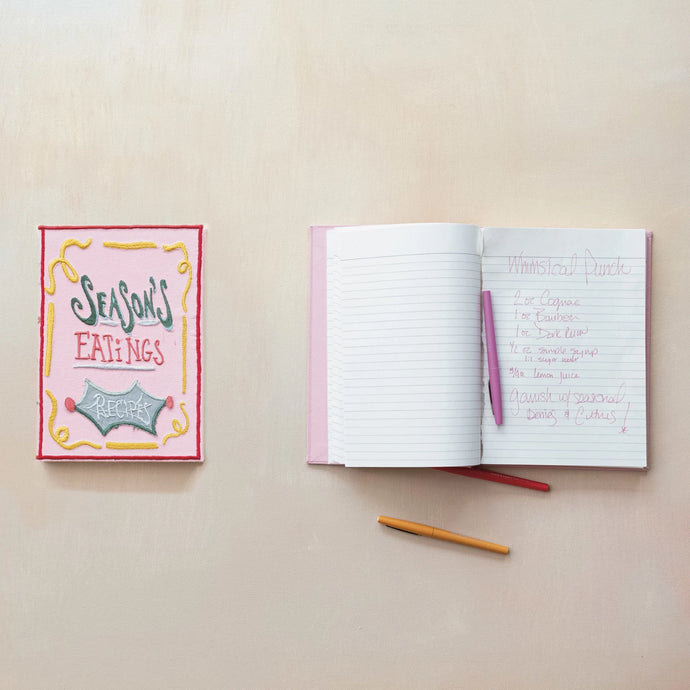 SEASON'S
EATINGS
RECIPES
Whimsical Punch
2 oz Cognac
1 oz Bourbon
1 oz Dark Rum
1/2 oz simple syrup
1:1 sugar water
3/4 oz lemon juice
garnish w/ seasonal
Berries & Citrus!